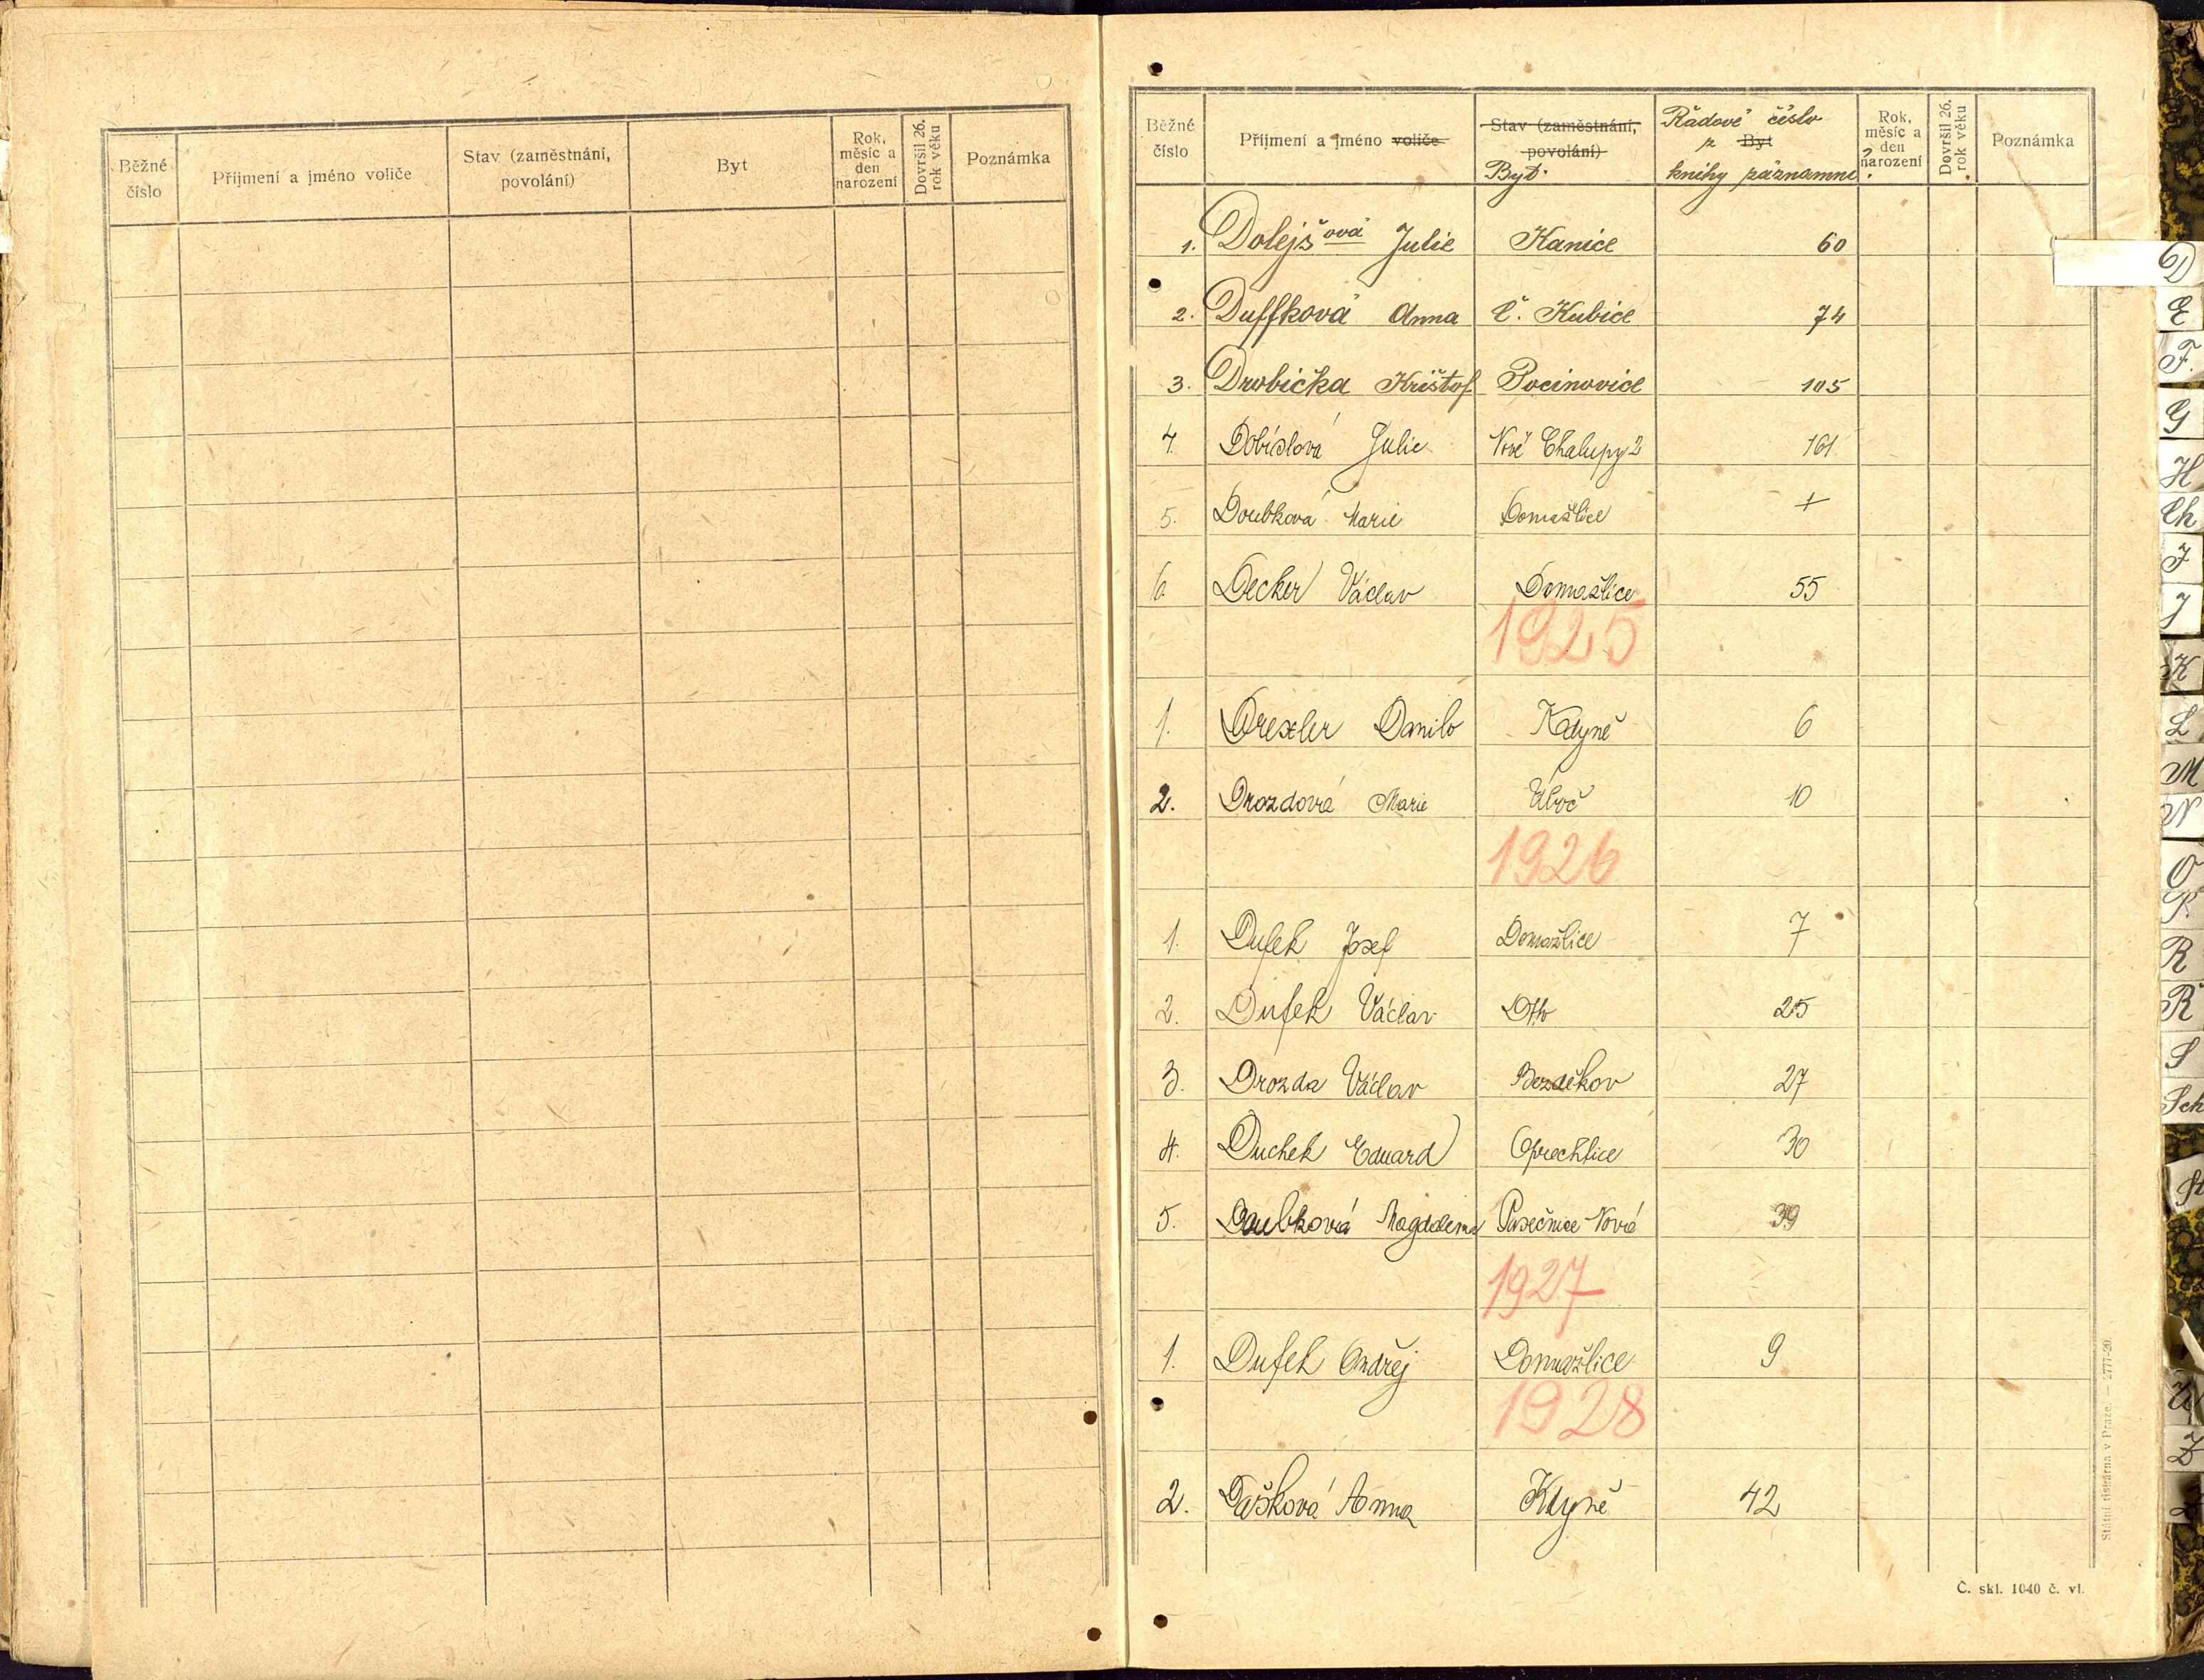 Běžné číslo | Příjmení a jméno voliče | Stav (zaměstnání, povolání) | Byt | Rok, měsíc a den narození | Dovršil 26. rok věku | Poznámka
Běžné číslo | Příjmení a jméno voliče | Stav (zaměstnání, povolání) Byt. | Řadové číslo z Byt knihy záznamní. | Rok, měsíc a den narození | Dovršil 26. rok věku | Poznámka
1. Dolejšová Julie Kanice 60
2. Duffková Anna Č. Kubice 74
3. Drobička Krištof Pocinovice 105
4. Dobíslová Julie Nové Chalupy 2 161
5. Doubková Marie Domažlice +
6. Decker Václav Domažlice 55
1925
1. Drexler Danilo Kdyně 6
2. Drozdová Marie Úboč 10
1926
1. Dufek Josef Domažlice 7
2. Dufek Václav Dtto 25
3. Drozda Václav Bezděkov 27
4. Duchek Eduard Oprechtice 30
5. Daubková Magdalena Pasečnice Nová 39
1927
1. Dufek Ondřej Domažlice 9
1928
2. Dašková Anna Kdyně 42
Státní tiskárna v Praze. — 2777-20.
Č. skl. 1040 č. vl.
D
E
F.
G
H
Ch
I
J
K
L
M
N
O
P.
R
Ř
S
Sch
St
U
Z